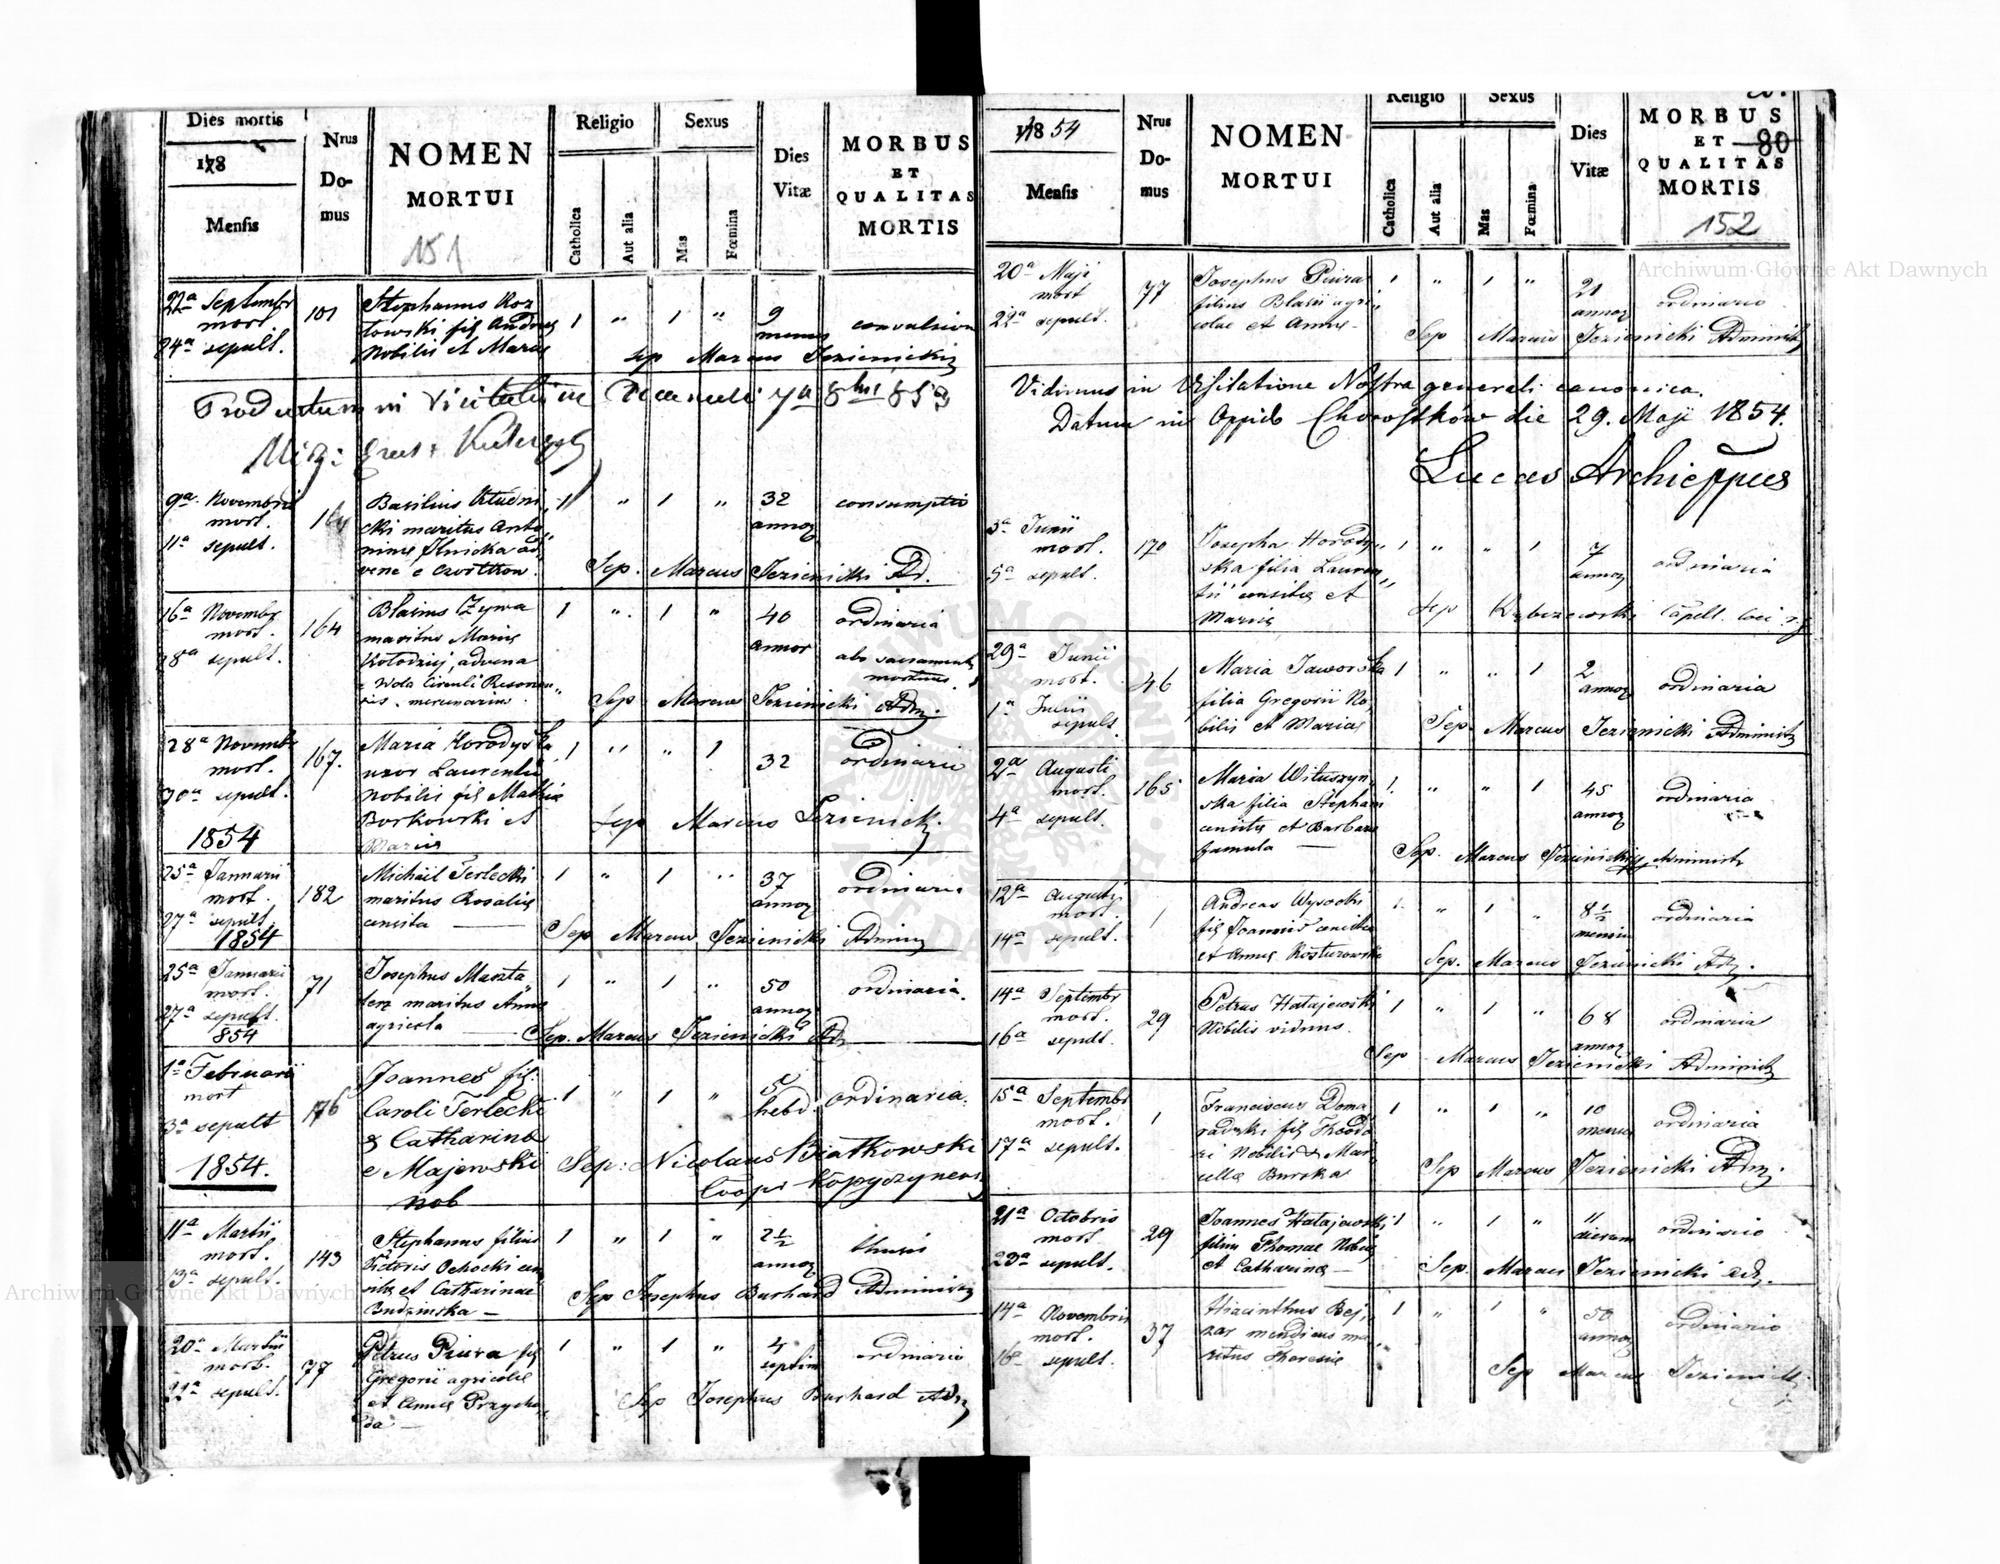 Dies mortis
Nrus
Do-
mus
NOMEN
MORTUI
Religio
Sexus
Dies
Vitæ
MORBUS
ET
QUALITAS
MORTIS
178
Mensis
Catholica
Aut alia
Mas
Fœmina
151
22a Septembr
mort.
24a sepult.
101
Stephanus Koz
łowski fil Andreæ
Nobilis et Mariæ
1 " 1 "
9
menses
convulsion
Sep Marcus Jezienicki
Productum in Visitatione Decanali 7a 8bris 853
9a Novembris
mort.
11a sepult.
164
Basilius Studni
cki maritus Anto
ninæ Ilnicka ad
venæ e Czortkow.
1 " 1 "
32
annor
consumptio
Sep. Marcus Jezienicki Ad.
16a Novembr
mort.
18a sepult.
164
Blasius Czywa
maritus Mariæ
Kołodziej, advena
e Wola Circuli Rzesovi
1 " 1 "
40
annor
ordinaria
abs sacramentis
mortuus
Sep Marcus Jezienicki Adm.
28a Novemb
mort.
30a sepult.
167.
Maria Horodyska
uxor Laurentii
Nobilis fil Mathiæ
Borkowski et
Mariæ
1 " " 1
32
ordinaria
Sep Marcus Jezienicki
1854
25a Januarii
mort.
27a sepult.
182
Michail Terlecki
maritus Rosaliæ
censita
1 " 1 "
37
annor
ordinaria
Sep Marcus Jezienicki Admin
1854
25a Januarii
mort.
27a sepult.
71
Josephus Maszta
lerz maritus Annæ
agricola
1 " 1 "
50
annor
ordinaria.
Sep. Marcus Jezienicki Ad
854
1a Februarii
mort
3a sepult
176
Joannes fil.
Caroli Terlecki
& Catharina
e Majewski
nob
1 " 1 "
5
hebd.
ordinaria.
Sep: Nicolaus Białkowski
Coop: Kopyczynces
1854.
11a Martii
mort.
13a sepult.
143
Stephanus filius
Victoris Ochocki cen
sitæ et Catharinae
Budzinska
1 " 1 "
2½
annor
thusis
Sep Josephus Burhard Administ
20a Martii
mort.
22a sepult.
77
Petrus Piura fil
Gregorii agricolæ
et Annæ Przycho
da
1 " 1 "
4
septim
ordinario
Sep Josephus Burhard Ad
1854
Mensis
Nrus
Do-
mus
NOMEN
MORTUI
Religio
Sexus
Catholica
Aut alia
Mas
Fœmina
Dies
Vitæ
MORBUS
ET
QUALITAS
MORTIS
80
152
20a Maji
mort
22a sepult.
77
Josephus Piura
filius Blasii agri
colae et Annæ
1 " 1 "
21
annor
ordinario
Sep Marcus Jezienicki Administ
Vidimus in Visitatione Nostra generali canonica.
Datum in Oppido Chorostków die 29. Maji 1854.
Lucas Archieppus
3a Junii
mort.
5a sepult.
170
Josepha Horody
ska filia Lauren
tii censitæ et
Mariæ
1 " " 1
7
annor
ordinaria
29a Junii
mort.
1a Julii
sepult
46
Maria Jaworska
filia Gregorii No
bilis et Mariae
1 " " 1
2
annor
ordinaria
Sep. Marcus Jezienicki Administ
2a Augusti
mort.
4a sepult.
165
Maria Wituszyn
ska filia Stephani
censitæ et Barbara
famula
1. " " 1
45
annor
ordinaria
Sep. Marcus Jezienicki Administ
12a Augusti
mort.
14a sepult.
1
Andreas Wysocki
fil Joannis censitæ
et Annæ Koszturowska
1. " 1 "
8½
mensium
ordinaria
Sep. Marcus Jezienicki Ad.
14a Septembr
mort.
16a sepult.
29
Petrus Hatajewski
Nobilis viduus.
1 " 1 "
68
annor
ordinaria
Sep Marcus Jezienicki Administ
15a Septembr
mort.
17a sepult.
1
Franciscus Doma
radzki fil Theodo
ri Nobilis & Mar
cellæ Burska
1 " 1 "
10
menses
ordinaria
Sep Marcus Jezienicki Adm.
21a Octobris
mort
23a sepult.
29
Joannes Hatajewski
filius Thomae Nobilis
et Catharinæ
1 " 1 "
11
dierum
ordinario
Sep. Marcus Jezienicki Ad.
14a Novembris
mort.
16 sepult.
37
Hiacinthus Bej
zar mendicus ma
ritus Theresiæ
1 " 1 "
50
annor
ordinario
Sep Marcus Jezienicki
Archiwum Główne Akt Dawnych
Archiwum Główne Akt Dawnych